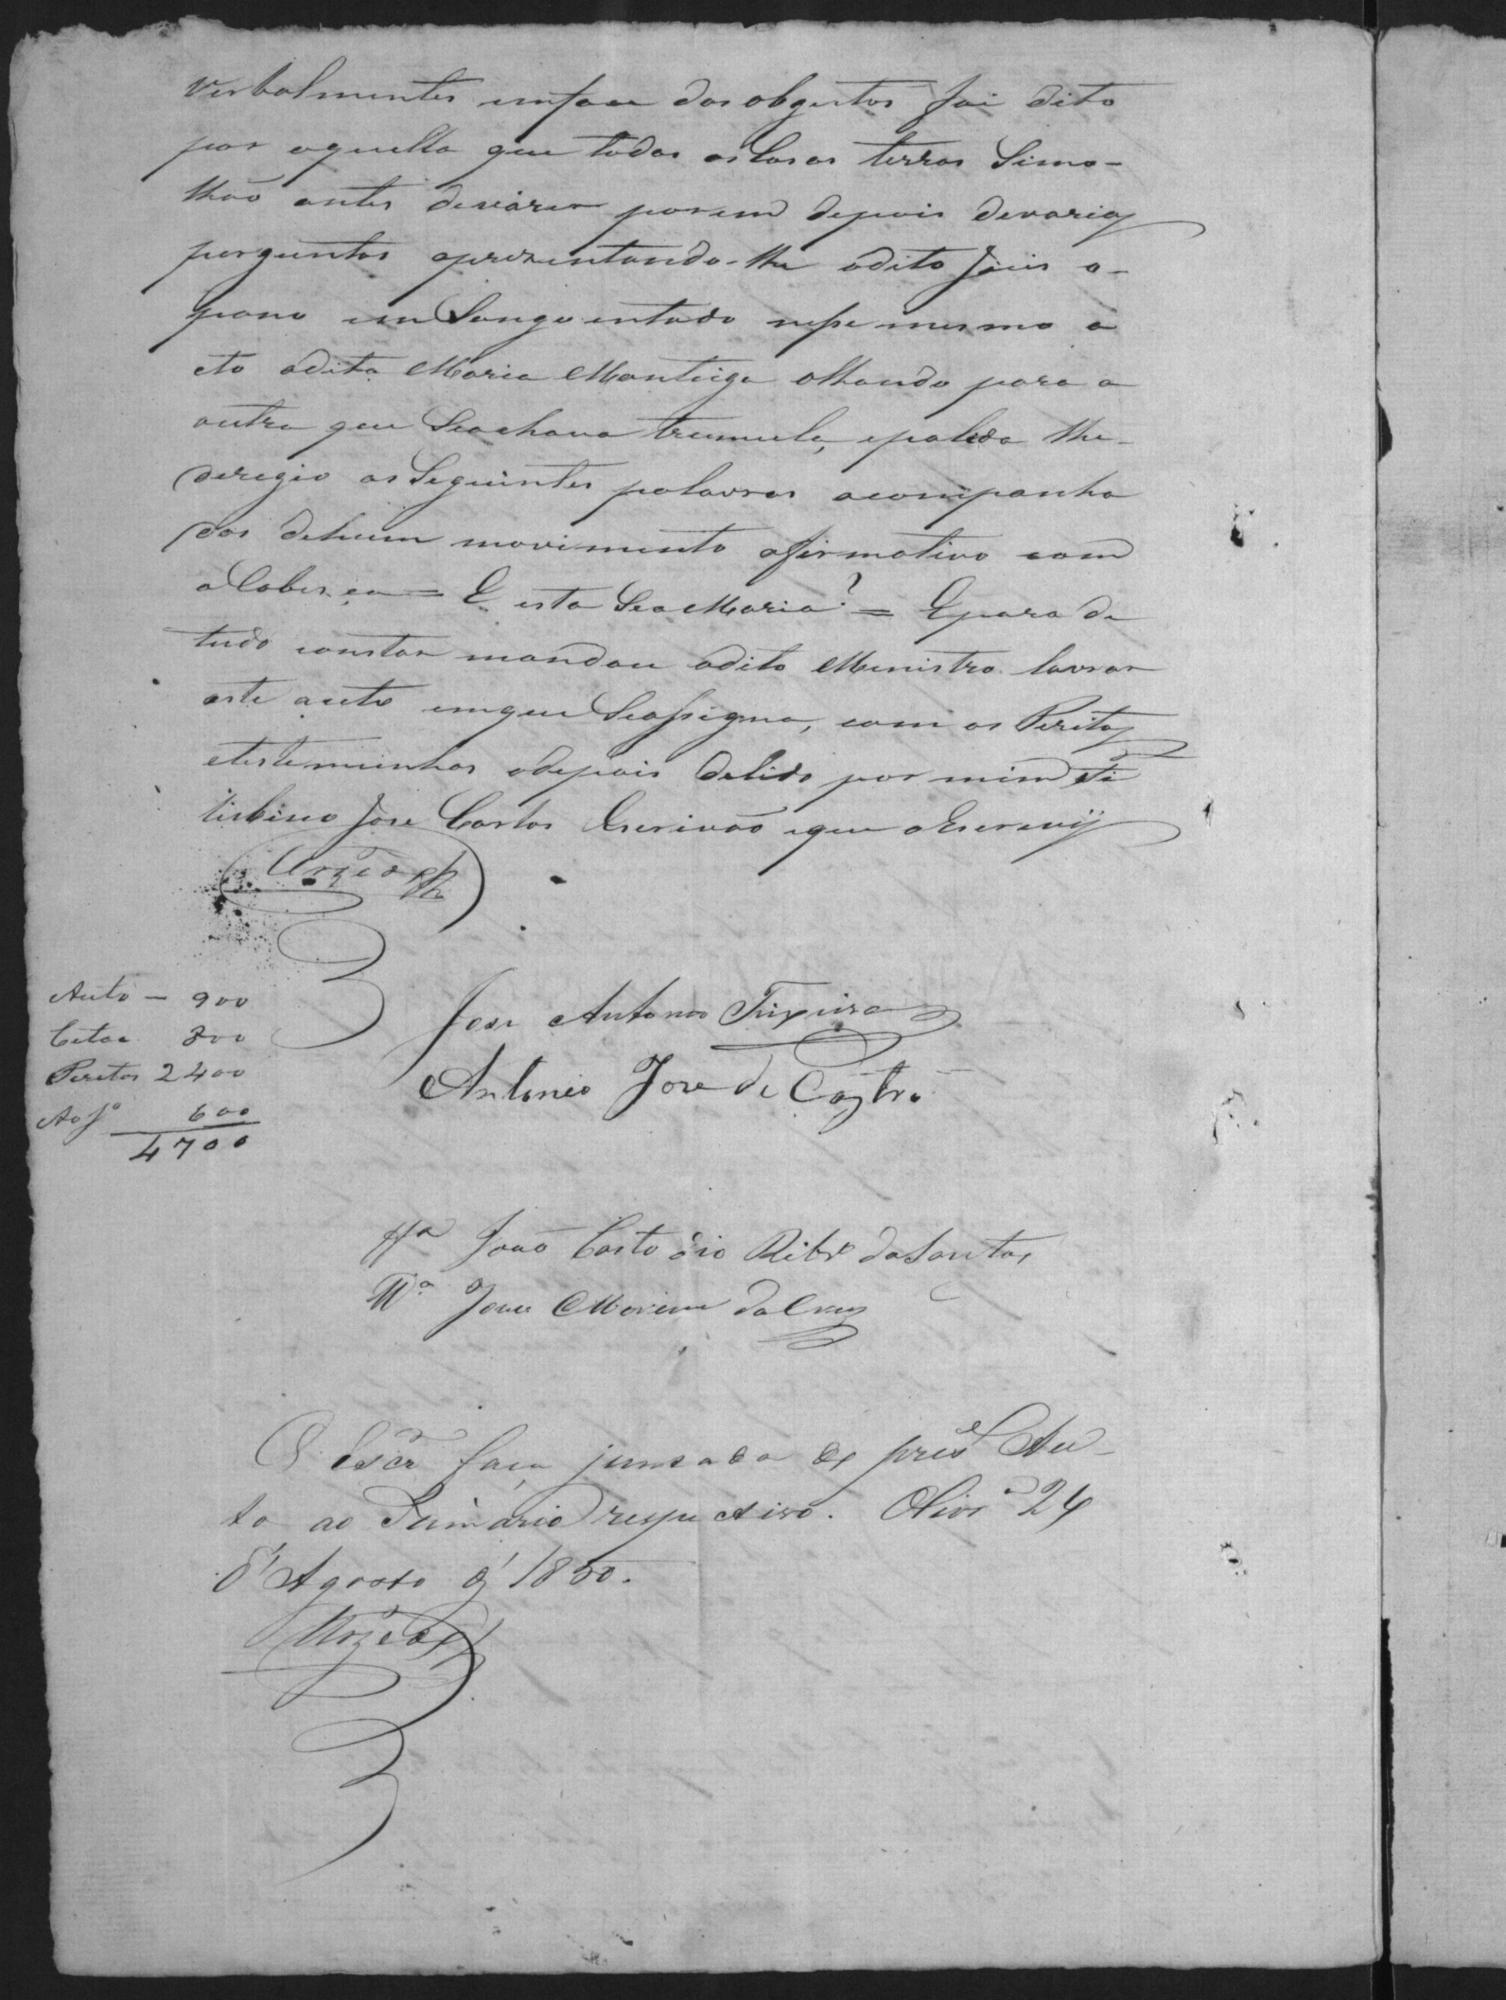 verbalmentes emface dos obgectos foi dito
por aquella que todas as Casas terras Seme-
lhão antes de váreas porem depois devarias
perguntas aprezentando-lhe odito Juis o-
pano em Sanguentado nesse mesmo a
cto adita Maria Manteiga olhando para a
outra que Seachava tremula, epaleda lhe-
deregio as Seguintes palavras acompanha
das dehum movimento afirmativo com
a Cabeça = E esta Sea Maria? = Epara de
tudo constar mandou odito Menistro lavrar
este auto emque Seassigna, com os Peritos
etestemunhas edepois delido por mim
José Carlos Escrivão eque oEscrevÿ
Auto — 900
Citac 800
Peritos 2400
Ao Jº 600
4700
Jose Antonio Teixeira
Antonio Jose de Castro
Tª João Custodio Ribrº dos Santos
Tª Jose Moreira da Cruz
O Escr faça juntada do prese Au-
to ao Sumário respectivo. Olivª 24
d'Agosto d' 1850.